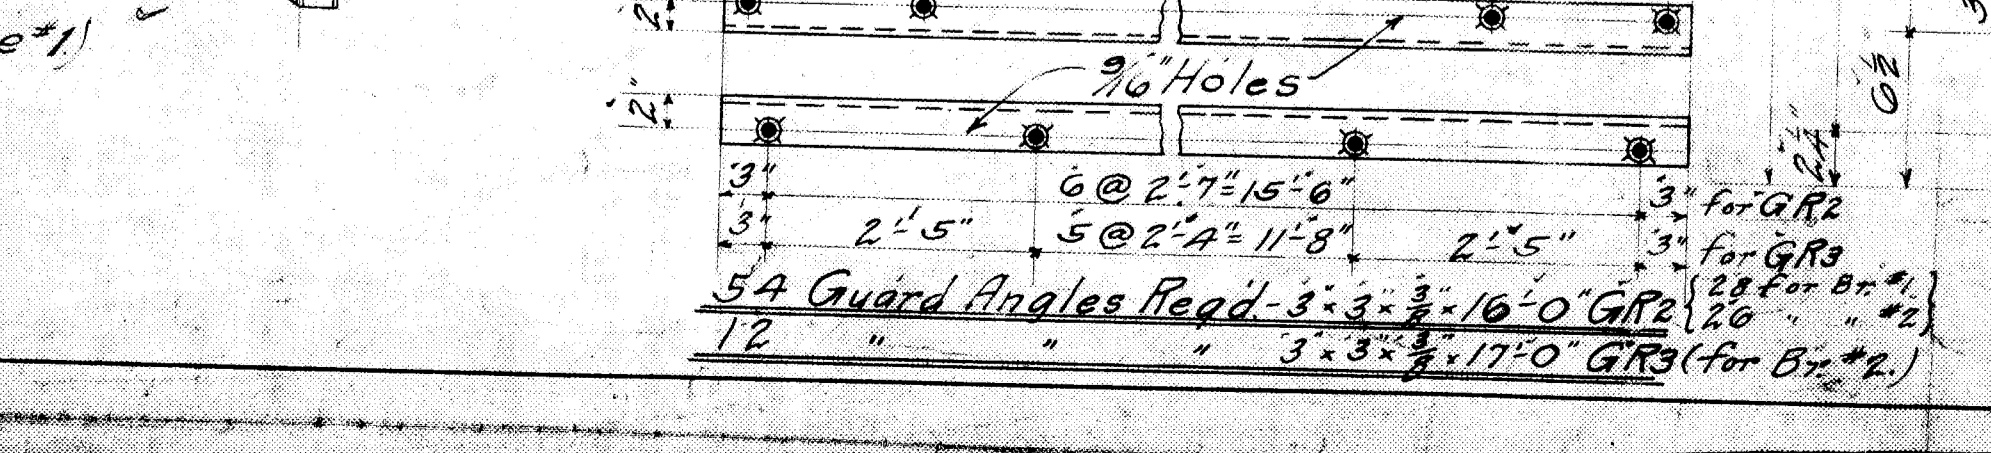 e #1)
2"
9/16" Holes
2"
6½
2¼"
3" 6 @ 2'-7" = 15'-6" 3" for GR2
3" 2'-5" 5 @ 2'-4" = 11'-8" 2'-5" 3" for GR3
54 Guard Angles Reqd. - 3" x 3" x 3/8" x 16'-0" GR2 {28 for Br. #1
26 " " #2}
12 " " " 3" x 3" x 3/8" x 17'-0" GR3 (for Br. #2.)